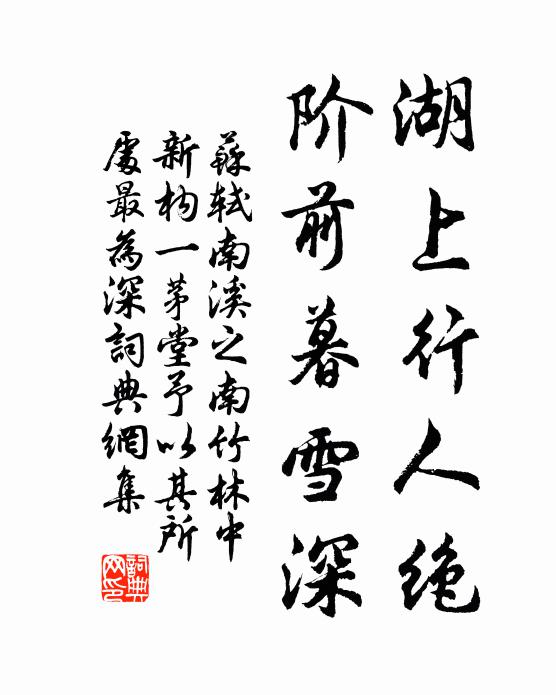 湖上行人绝
阶前暮雪深
蘇軾南溪之南竹林中
新构一茅堂予以其所
處最為深詞典網集
詞典網印